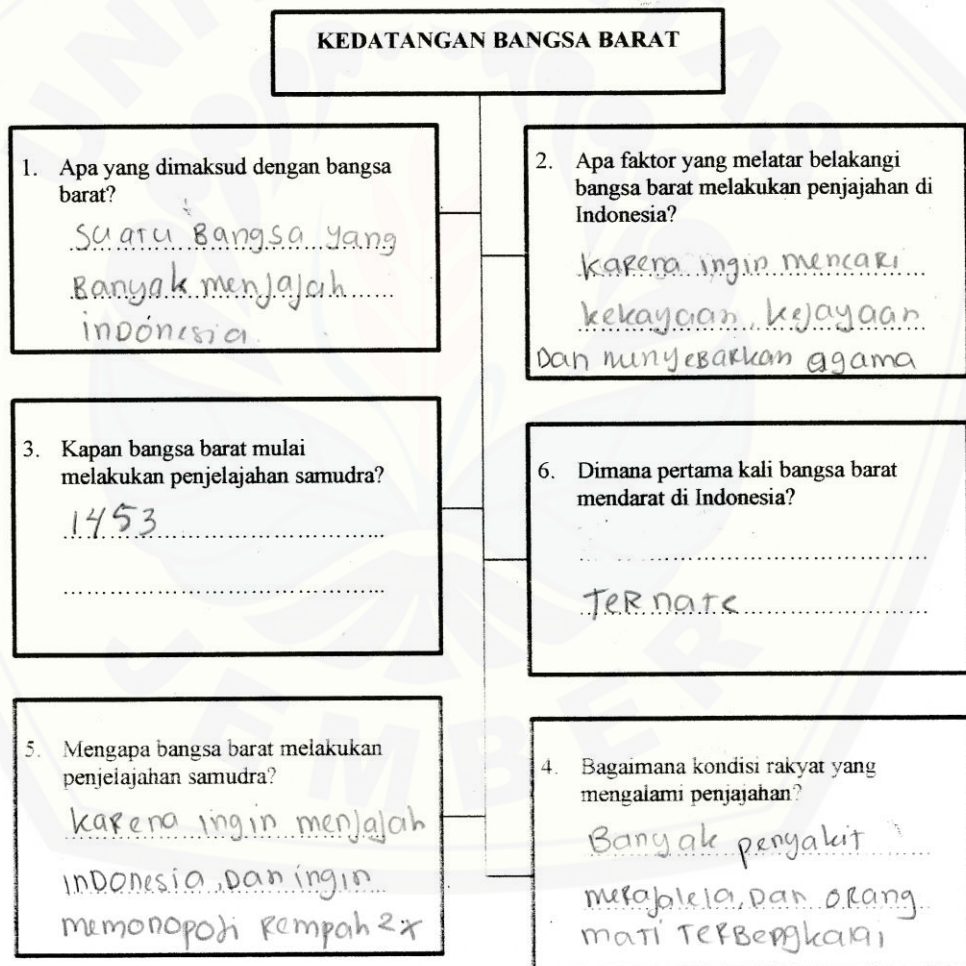 KEDATANGAN BANGSA BARAT
1. Apa yang dimaksud dengan bangsa
barat?
suatu Bangsa yang
Banyak menjajah
inDonesia
2. Apa faktor yang melatar belakangi
bangsa barat melakukan penjajahan di
Indonesia?
kaRena ingin mencaRi
kekayaan, kejayaan
Dan menyeBaRkan agama
3. Kapan bangsa barat mulai
melakukan penjelajahan samudra?
1453
6. Dimana pertama kali bangsa barat
mendarat di Indonesia?
TeRnate
5. Mengapa bangsa barat melakukan
penjelajahan samudra?
kaRena ingin menjajah
inDonesia, Dan ingin
memonopoli Rempah2x
4. Bagaimana kondisi rakyat yang
mengalami penjajahan?
Banyak penyakit
merajalela, Dan oRang
mati TeRBengkalai